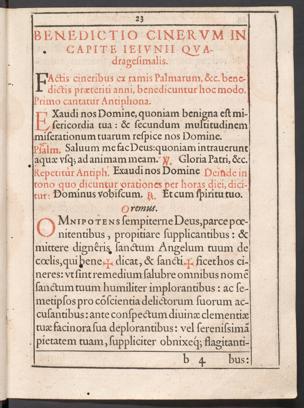 23
BENEDICTIO CINERVM IN
CAPITE IEIVNII QVA-
dragesimalis.
FActis cineribus ex ramis Palmarum, &c. bene-
dictis præteriti anni, benedicuntur hoc modo.
Primo cantatur Antiphona.
EXaudi nos Domine, quoniam benigna est mi-
sericordia tua: & secundum multitudinem
miserationum tuarum respice nos Domine.
Psalm. Saluum me fac Deus: quoniam intrauerunt
aquæ vsq; ad animam meam. ℣. Gloria Patri, &c.
Repetitur Antiph. Exaudi nos Domine Deinde in
tono quo dicuntur orationes per horas diei, dici-
tur: Dominus vobiscum. ℟. Et cum spiritu tuo.
Oremus.
OMNIPOTENS sempiterne Deus, parce pœ-
nitentibus, propitiare supplicantibus: &
mittere digneris, sanctum Angelum tuum de
cœlis, qui bene ✠ dicat, & sancti ✠ ficet hos ci-
neres: vt sint remedium salubre omnibus nomẽ
sanctum tuum humiliter implorantibus: ac se-
metipsos pro cõscientia delictorum suorum ac-
cusantibus: ante conspectum diuinæ clementiæ
tuæ facinora sua deplorantibus: vel serenissimã
pietatem tuam, suppliciter obnixeq; flagitanti-
b 4 bus: